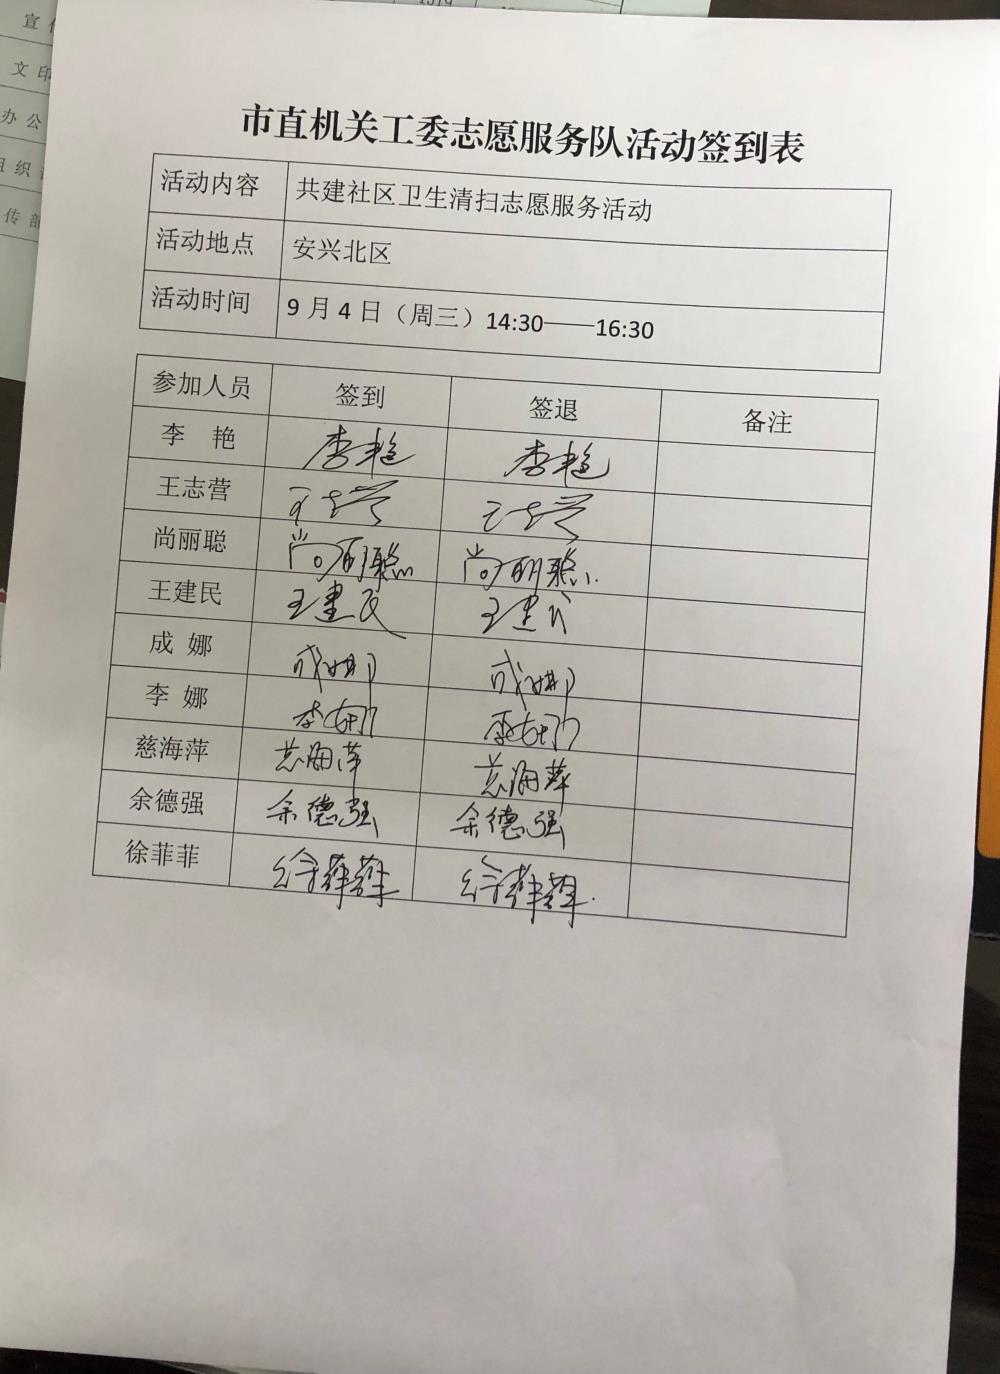 市直机关工委志愿服务队活动签到表
活动内容 共建社区卫生清扫志愿服务活动
活动地点 安兴北区
活动时间 9月4日（周三）14:30——16:30
参加人员 签到 签退 备注
李 艳 李艳 李艳
王志营 王志营 王志营
尚丽聪 尚丽聪 尚丽聪
王建民 王建民 王建民
成 娜 成娜 成娜
李 娜 李娜 李娜
慈海萍 慈海萍 慈海萍
余德强 余德强 余德强
徐菲菲 徐菲菲 徐菲菲
文印
办公
组织
传部